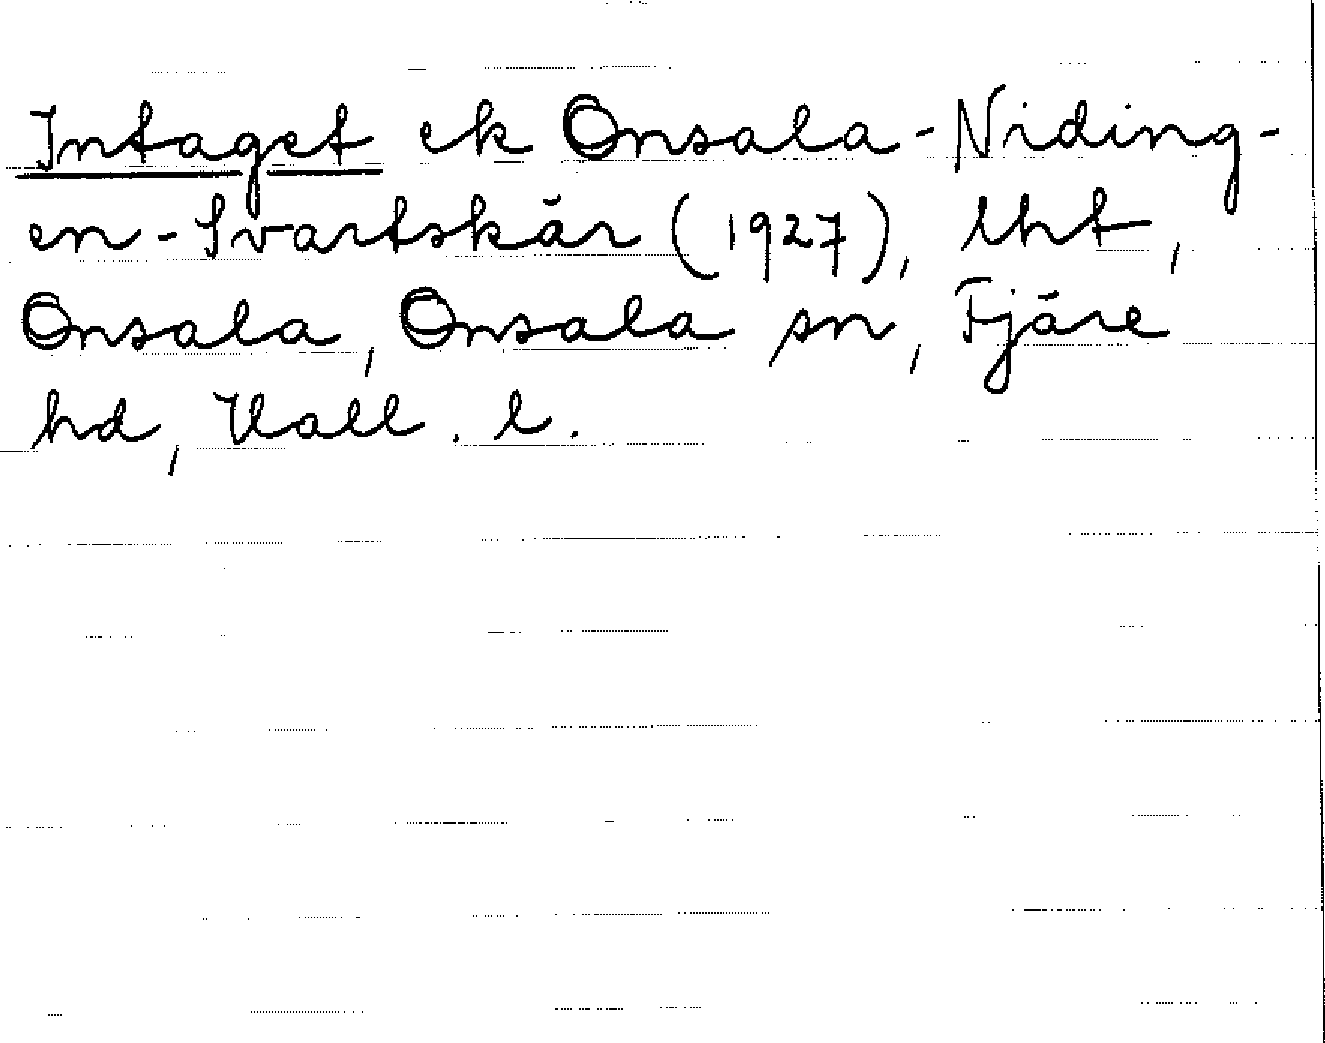 Intaget ek Onsala-Niding-
en-Svartskär (1927), lht,
Onsala, Onsala sn, Fjäre
hd, Hall. l.